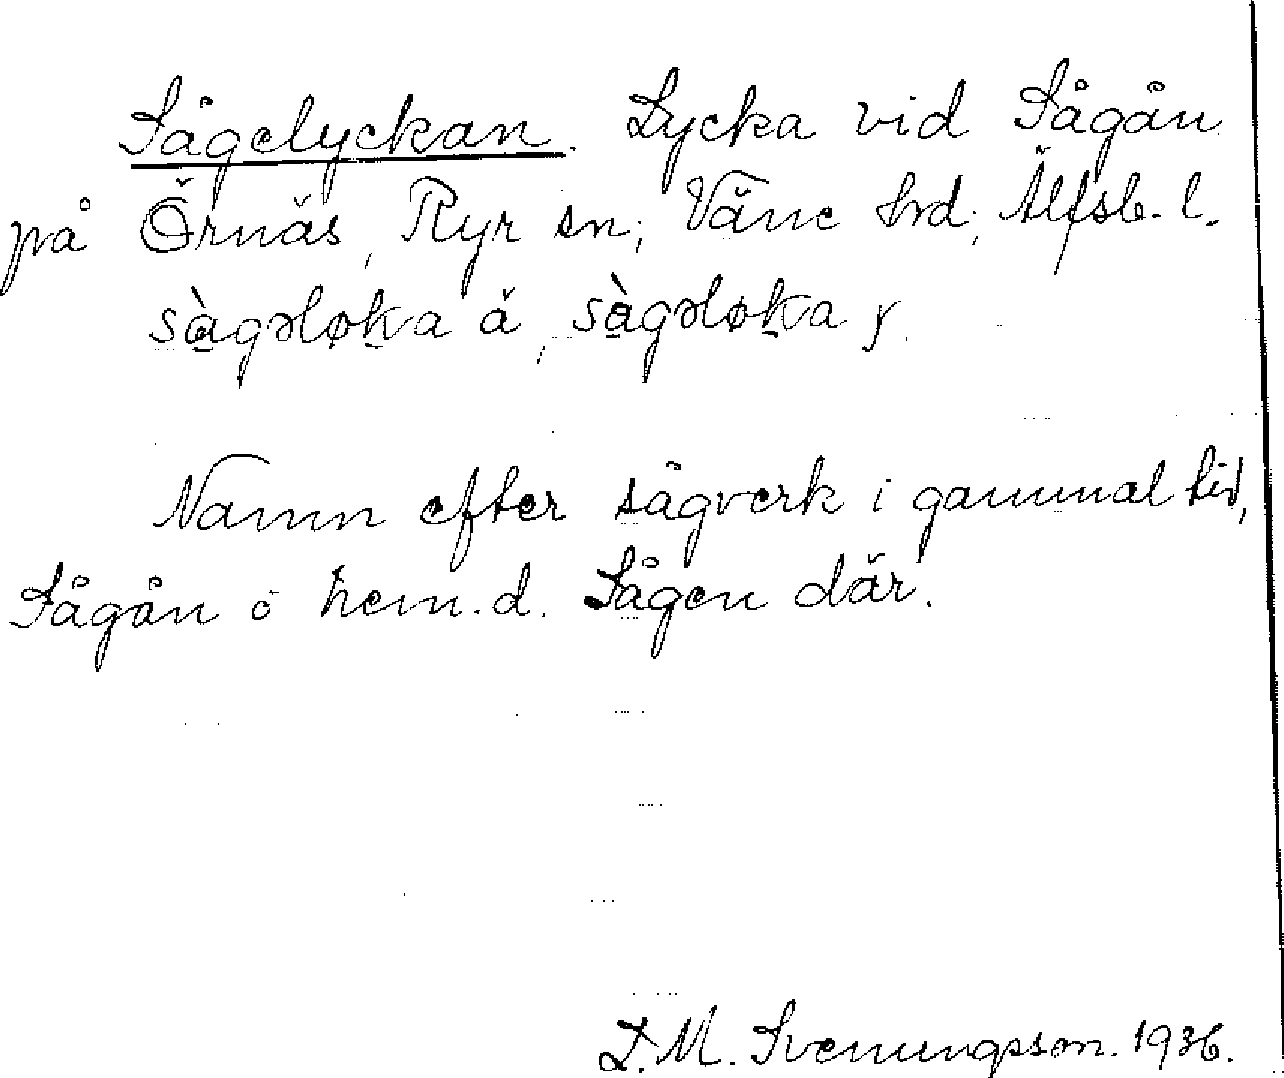 Sågelyckan. Lycka vid Sågån
på Örnäs, Ryr sn; Väne hrd; Älfsb. l.
sàgəløka ä, sàgəløka y.
Namn efter sågverk i gammal tid,
Sågån o hem.d. Sågen där.
L. M. Svenungsson. 1936.